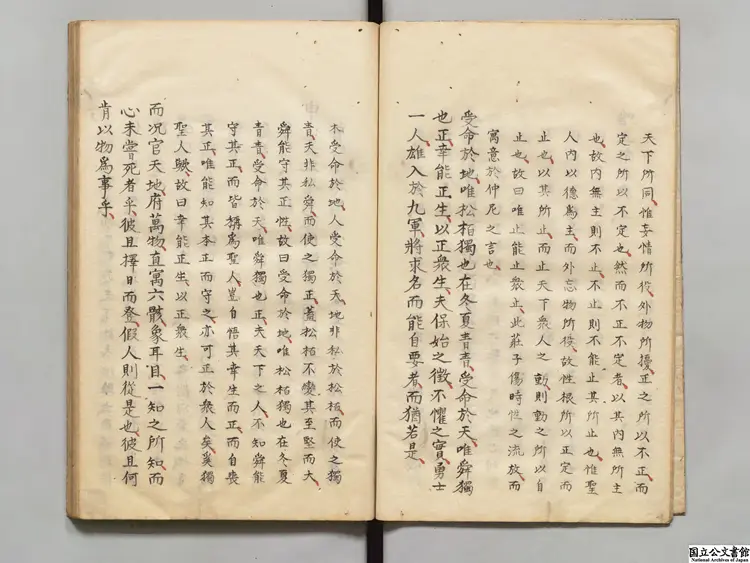 天下所同惟妄情所役外物所擾正之所以不正而
定之所以不定也然而不正不定者以其內無所主
也故內無主則不止不止則不能止其所止也惟聖
人內以德爲主而外忘物所役故性根所以正定而
止也以其所止而止天下衆人之動則動之所以自
止也故曰唯止能止衆止此莊子傷時性之流放而
寓意於仲尼之言也
受命於地唯松柏獨也在冬夏青青受命於天唯舜獨
也正幸能正生以正衆生夫保始之徵不懼之實勇士
一人雄入於九軍將求名而能自要者而猶若是
木受命於地人受命於天地非私於松柏而使之獨
青天非私舜而使之獨正蓋松柏不變其至堅而大
舜能守其正性故曰受命於地唯松柏獨也在冬夏
青青受命於天唯舜獨也正夫天下之人不知舜能
守其正而皆稱爲聖人豈自悟其幸生而正而自喪
其正唯能知其本正而守之亦可正於衆人矣奚獨
聖人歟故曰幸能正生以正衆生
而況官天地府萬物直寓六骸象耳目一知之所知而
心未嘗死者乎彼且擇日而登假人則從是也彼且何
肯以物爲事乎
国立公文書館
National Archives of Japan